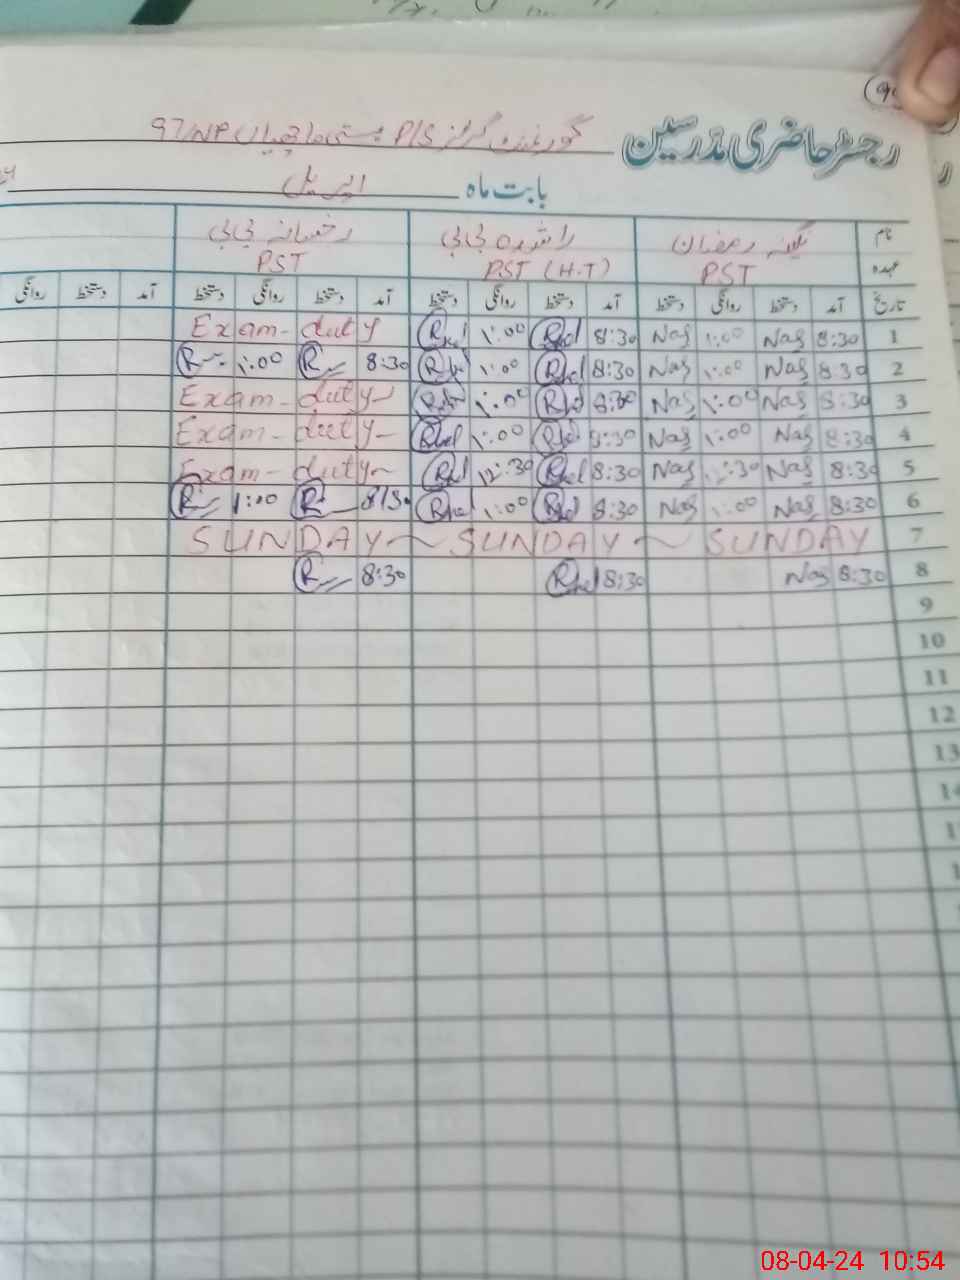 رجسٹر حاضری مدرسین گورنمنٹ گرلز P/S بستی 97/NP
بابت ماہ اپریل
نام نگینہ رمضان راشدہ بی بی رخسانہ بی بی
عہدہ PST PST (H.T) PST
تاریخ آمد دستخط روانگی دستخط آمد دستخط روانگی دستخط آمد دستخط روانگی دستخط آمد دستخط روانگی
1 8:30 Nag 1:00 Nag 8:30 1:00 Exam-duty
2 8:30 Nag 1:00 Nag 8:30 1:00 8:30 R 1:00 R
3 8:30 Nag 1:00 Nag 8:30 1:00 Exam-duty
4 8:30 Nag 1:00 Nag 8:30 1:00 Exam-duty
5 8:30 Nag 12:30 Nag 8:30 12:30 Exam-duty
6 8:30 Nag 1:00 Nag 8:30 1:00 8:30 R 1:00 R
7 SUNDAY ~ SUNDAY ~ SUNDAY
8 8:30 Nag 8:30 8:30 R
9
10
11
12
13
08-04-24 10:54